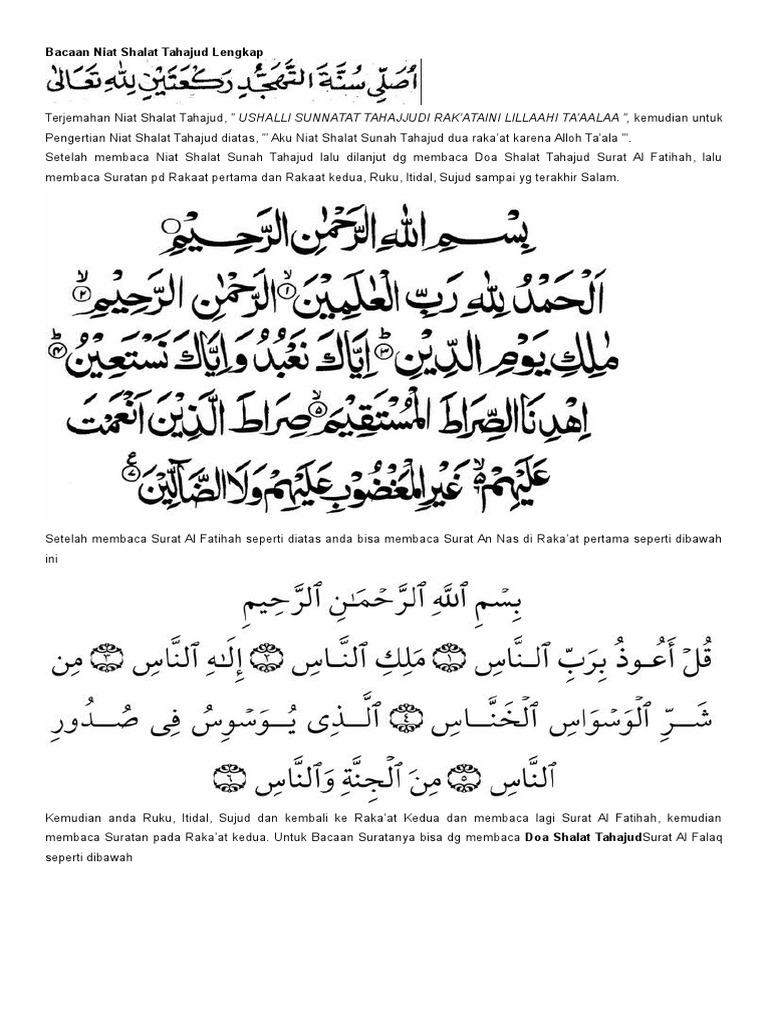 Bacaan Niat Shalat Tahajud Lengkap
اُصَلِّى سُنَّةَ التَّهَجُّدِ رَكْعَتَيْنِ لِلّٰهِ تَعَالٰى
Terjemahan Niat Shalat Tahajud, ” USHALLI SUNNATAT TAHAJJUDI RAK’ATAINI LILLAAHI TA’AALAA ”, kemudian untuk
Pengertian Niat Shalat Tahajud diatas, ”’ Aku Niat Shalat Sunah Tahajud dua raka’at karena Alloh Ta’ala ”’.
Setelah membaca Niat Shalat Sunah Tahajud lalu dilanjut dg membaca Doa Shalat Tahajud Surat Al Fatihah, lalu
membaca Suratan pd Rakaat pertama dan Rakaat kedua, Ruku, Itidal, Sujud sampai yg terakhir Salam.
بِسْمِ اللهِ الرَّحْمٰنِ الرَّحِيْمِ
اَلْحَمْدُ لِلّٰهِ رَبِّ الْعٰلَمِيْنَ ۙ﴿١﴾ الرَّحْمٰنِ الرَّحِيْمِ ۙ﴿٢﴾
مٰلِكِ يَوْمِ الدِّيْنِ ۗ﴿٣﴾ اِيَّاكَ نَعْبُدُ وَاِيَّاكَ نَسْتَعِيْنُ ۗ﴿٤﴾
اِهْدِنَا الصِّرَاطَ الْمُسْتَقِيْمَ ۙ﴿٥﴾ صِرَاطَ الَّذِيْنَ اَنْعَمْتَ
عَلَيْهِمْ ۙ﴿٦﴾ غَيْرِ الْمَغْضُوْبِ عَلَيْهِمْ وَلَا الضَّآلِّيْنَ ࣖ﴿٧﴾
Setelah membaca Surat Al Fatihah seperti diatas anda bisa membaca Surat An Nas di Raka’at pertama seperti dibawah
ini
بِسْمِ ٱللَّهِ ٱلرَّحْمَـٰنِ ٱلرَّحِيمِ
قُلْ أَعُوذُ بِرَبِّ ٱلنَّاسِ ﴿١﴾ مَلِكِ ٱلنَّاسِ ﴿٢﴾ إِلَـٰهِ ٱلنَّاسِ ﴿٣﴾ مِن
شَرِّ ٱلْوَسْوَاسِ ٱلْخَنَّاسِ ﴿٤﴾ ٱلَّذِى يُوَسْوِسُ فِى صُدُورِ
ٱلنَّاسِ ﴿٥﴾ مِنَ ٱلْجِنَّةِ وَٱلنَّاسِ ﴿٦﴾
Kemudian anda Ruku, Itidal, Sujud dan kembali ke Raka’at Kedua dan membaca lagi Surat Al Fatihah, kemudian
membaca Suratan pada Raka’at kedua. Untuk Bacaan Suratanya bisa dg membaca Doa Shalat TahajudSurat Al Falaq
seperti dibawah